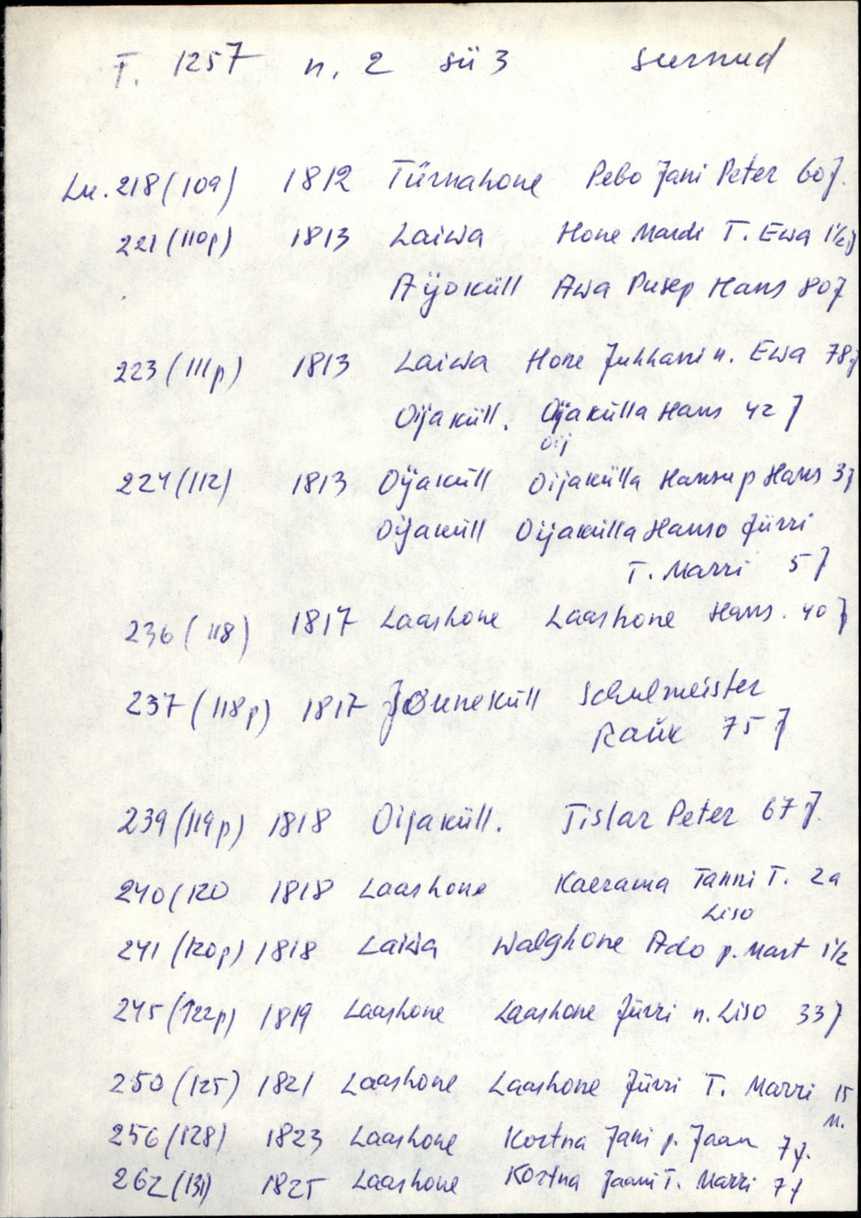 T. 1257 n. 2 sü 3 surnud
Lu. 218 (109) 1812 Türnahone Pebo Jani Peter 60 J.
221 (110p) 1813 Laiwa Hone Mardi T. Ewa 1½ J
Aÿoküll Awa Pusep Hans 80 J
223 (111p) 1813 Laiwa Hone Juhhani n. Ewa 78 J
Oijaküll. Oijakülla Hans 42 J
Oij
224 (112) 1813 Oijaküll Oijakülla Hansu p Hans 3 J
Oijaküll Oijakülla Hanso Jürri
T. Marri 5 J
236 (118) 1817 Laashone Laashone Hans. 40 J
237 (118p) 1817 Jõuneküll Schulmeister
Rauk 75 J
239 (119p) 1818 Oijaküll. Tislar Peter 67 J.
240 (120 1818 Laashone Kaerama Tanni T. 2a
Liso
241 (120p) 1818 Laiwa Walghone Ado p. Mart 1½
245 (122p) 1819 Laashone Laashone Jürri n. Liso 33 J
250 (125) 1821 Laashone Laashone Jürri T. Marri 15
M.
256 (128) 1823 Laashone Kortna Jani p. Jaan 7 J.
262 (131) 1825 Laashone Kortna Jaani T. Marri 7 J